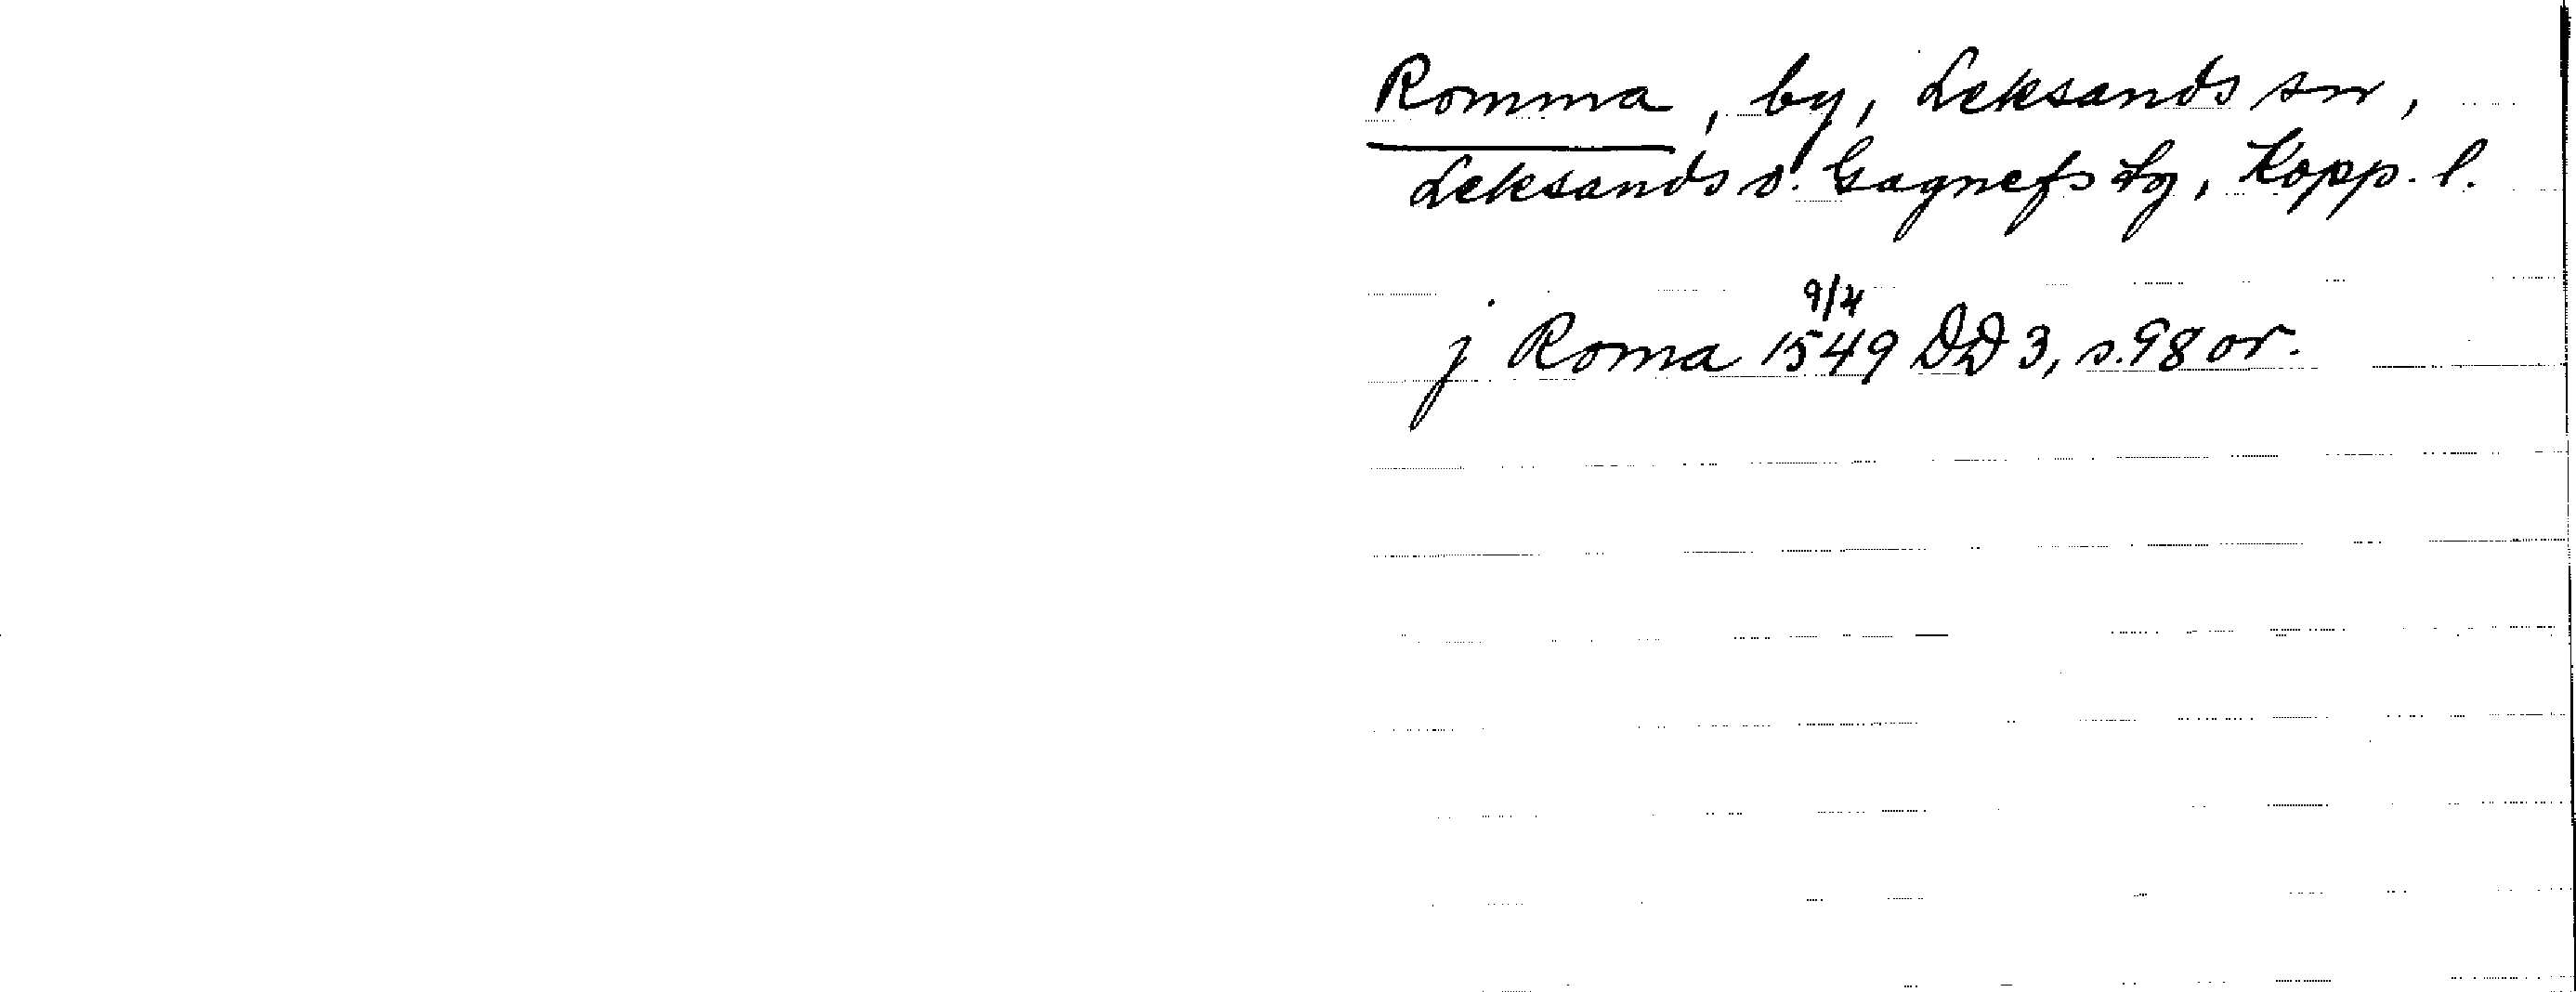 Romma, by, Leksands sn,
Leksands o. Gagnefs tg, Kopp. l.
9/4
j Roma 1549 DD 3, s. 98 or.